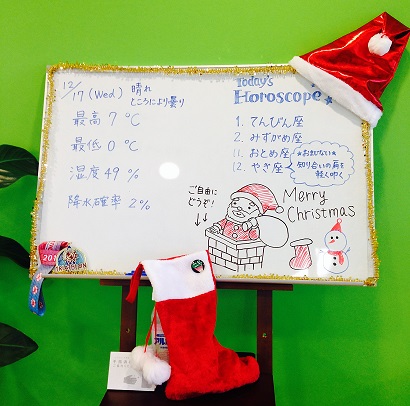 12/17 (Wed) 晴れ
ところにより曇り
最高 7 ℃
最低 0 ℃
湿度 49 %
降水確率 2%
Today's
Horoscope
1. てんびん座
2. みずがめ座
11. おとめ座
12. やぎ座
★おまじない★
知り合いの肩を
軽く叩く
ご自由に
どうぞ!
↓↓
Merry
Christmas
201